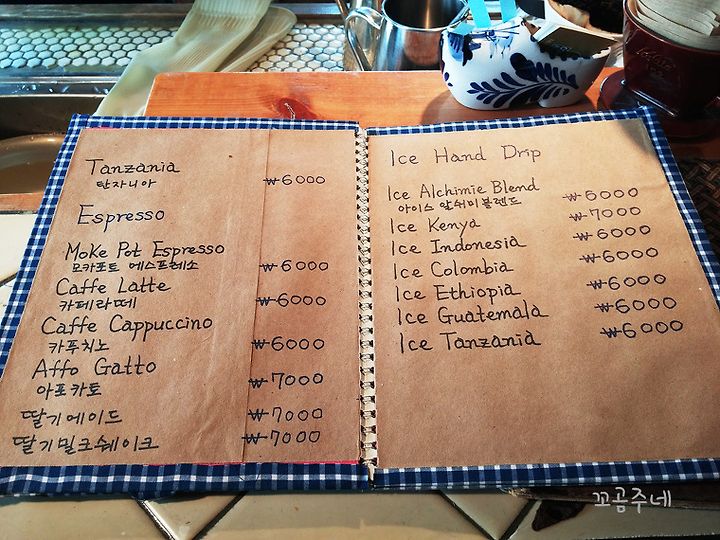 Tanzania
탄자니아 ₩6000
Espresso
Moke Pot Espresso
모카포트 에스프레소 ₩6000
Caffe Latte
카페라떼 ₩6000
Caffe Cappuccino
카푸치노 ₩6000
Affo Gatto
아포카토 ₩7000
딸기에이드 ₩7000
딸기밀크쉐이크 ₩7000
Ice Hand Drip
Ice Alchimie Blend
아이스 알쉬미 블렌드 ₩6000
Ice Kenya ₩7000
Ice Indonesia ₩6000
Ice Colombia ₩6000
Ice Ethiopia ₩6000
Ice Guatemala ₩6000
Ice Tanzania ₩6000
꼬곰주네